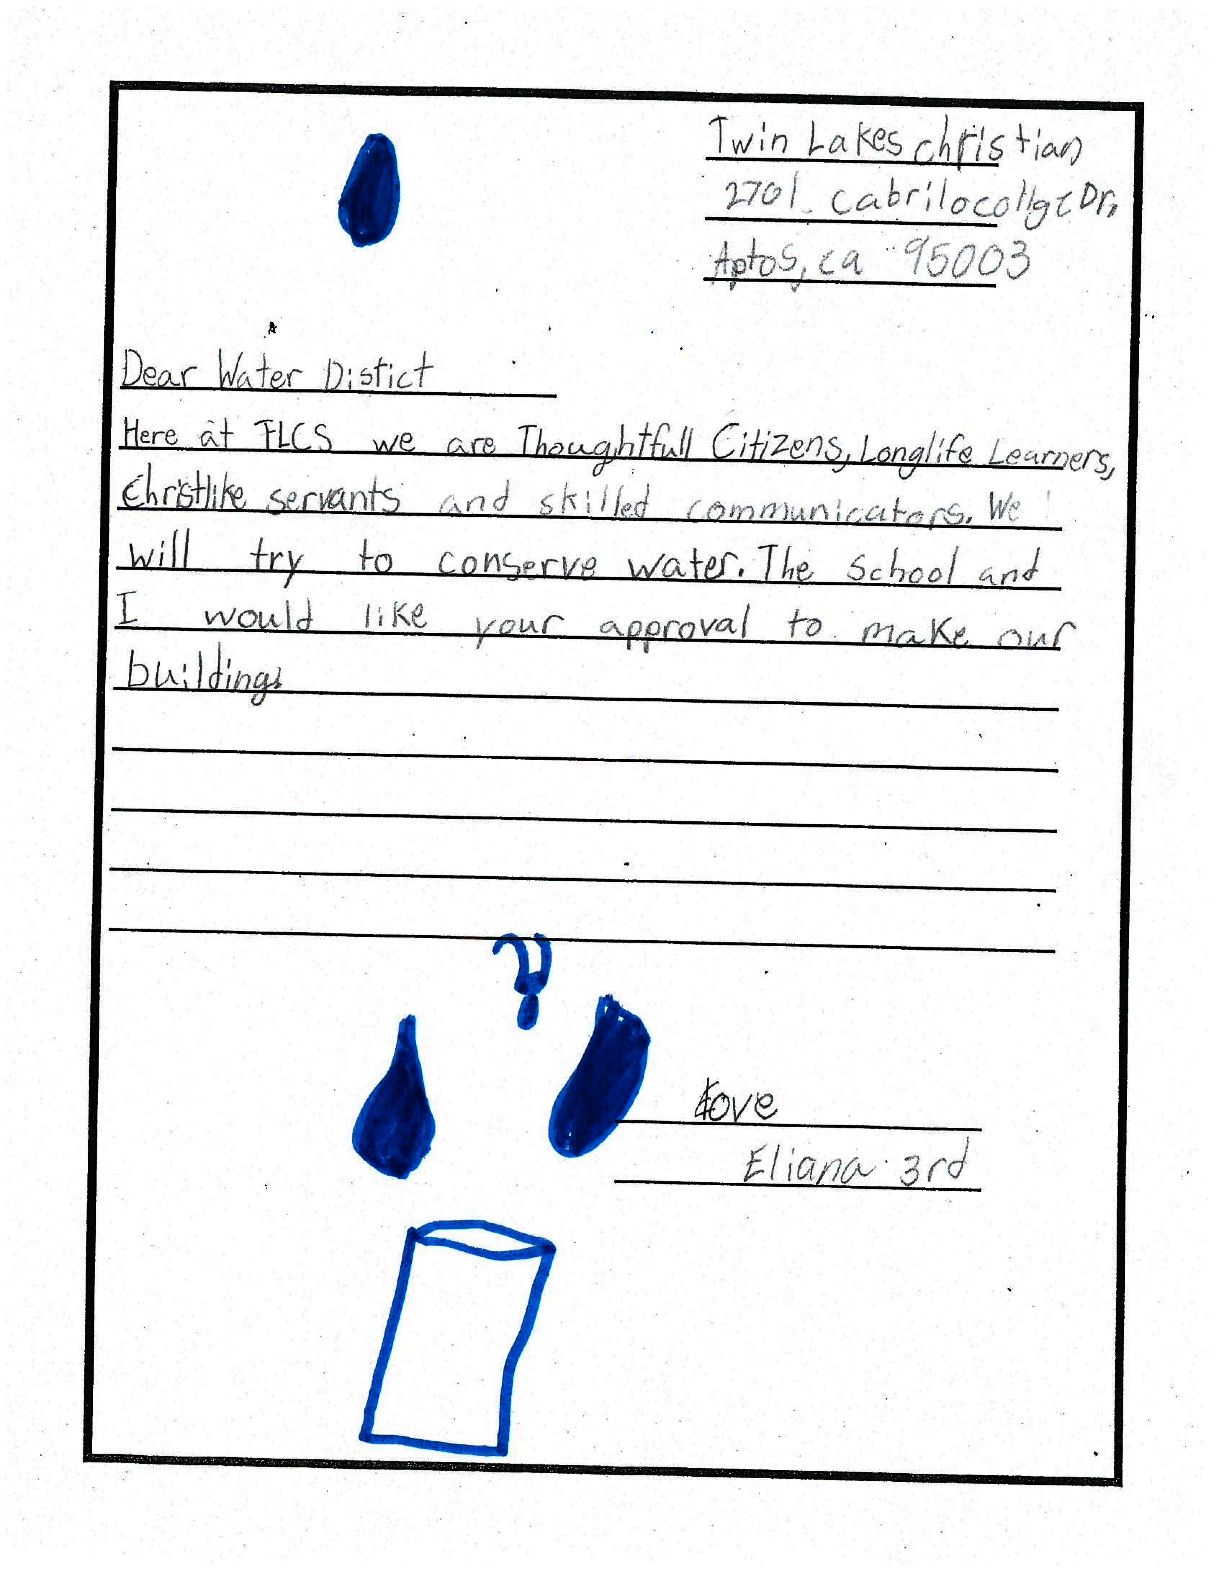 Twin Lakes christian
2701 cabrilocollge Dr,
Aptos, ca 95003
Dear Water Distict
Here at TLCS we are Thoughtfull Citizens, Longlife Learners,
Christlike servants and skilled communicators. We
will try to conserve water. The School and
I would like your approval to make our
buildings
Love
Eliana 3rd